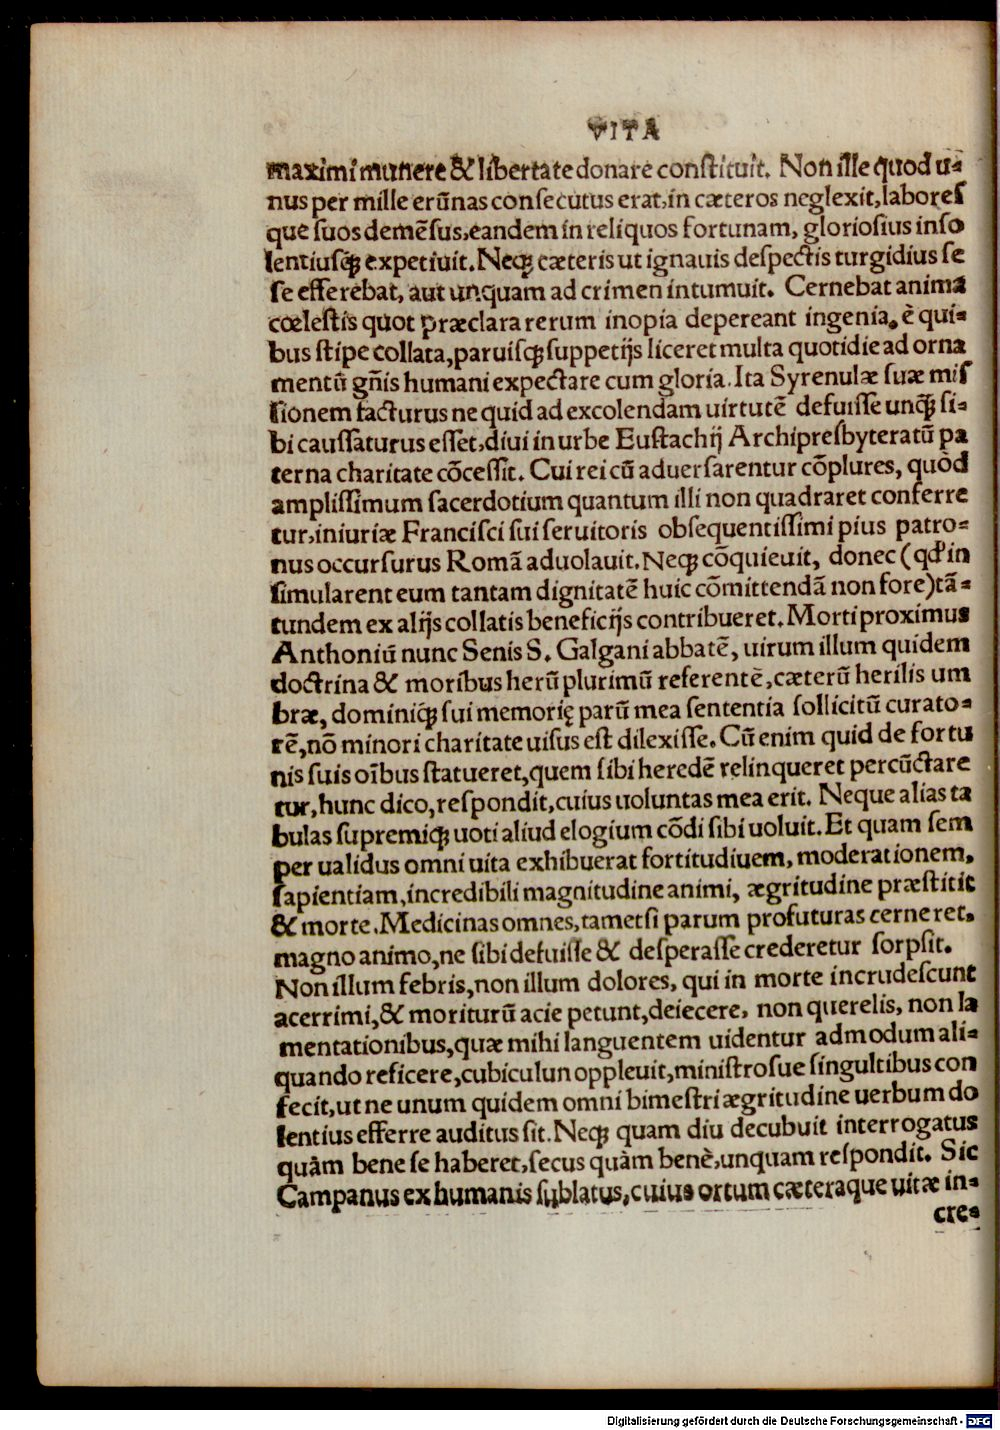 VITA
maximi munere & libertate donare constituit. Non ille quod u-
nus per mille erũnas consecutus erat, in cæteros neglexit, labores
que suos demẽsus, eandem in reliquos fortunam, gloriosius inso
lentiusqꝫ expetiuit. Neqꝫ cæteris ut ignauis despectis turgidius se
se efferebat, aut unquam ad crimen intumuit. Cernebat anima
cœlestis quot præclara rerum inopia depereant ingenia, è qui-
bus stipe collata, paruisqꝫ suppetijs liceret multa quotidie ad orna
mentũ gñis humani expectare cum gloria. Ita Syrenulæ suæ mis
sionem facturus ne quid ad excolendam uirtutẽ defuisse unqꝫ̃ si-
bi caussaturus esset, diui in urbe Eustachij Archipresbyteratũ pa
terna charitate cõcessit. Cui rei cũ aduersarentur cõplures, quòd
amplissimum sacerdotium quantum illi non quadraret conferre
tur, iniuriæ Francisci sui seruitoris obsequentissimi pius patro-
nus occursurus Romã aduolauit. Neqꝫ cõquieuit, donec (qd' in
simularent eum tantam dignitatẽ huic cõmittendã non fore) tã-
tundem ex alijs collatis beneficijs contribueret. Morti proximus
Anthoniũ nunc Senis S. Galgani abbatẽ, uirum illum quidem
doctrina & moribus herũ plurimũ referentẽ, cæterũ herilis um
bræ, dominiqꝫ sui memorię parũ mea sententia sollicitũ curato-
rẽ, nõ minori charitate uisus est dilexisse. Cũ enim quid de fortu
nis suis oĩbus statueret, quem sibi heredẽ relinqueret percũctare
tur, hunc dico, respondit, cuius uoluntas mea erit. Neque alias ta
bulas supremiqꝫ uoti aliud elogium cõdi sibi uoluit. Et quam sem
per ualidus omni uita exhibuerat fortitudiuem, moderationem,
sapientiam, incredibili magnitudine animi, ægritudine præstitit
& morte. Medicinas omnes, tametsi parum profuturas cerneret,
magno animo, ne sibi defuisse & desperasse crederetur sorpsit.
Non illum febris, non illum dolores, qui in morte incrudescunt
acerrimi, & moriturũ acie petunt, deiecere, non querelis, non la
mentationibus, quæ mihi languentem uidentur admodum ali-
quando reficere, cubiculun oppleuit, ministrosue singultibus con
fecit, ut ne unum quidem omni bimestri ægritudine uerbum do
lentius efferre auditus sit. Neqꝫ quam diu decubuit interrogatus
quàm bene se haberet, secus quàm benè, unquam respondit. Sic
Campanus ex humanis sublatus, cuius ortum cæteraque uitæ in-
cre-
Digitalisierung gefördert durch die Deutsche Forschungsgemeinschaft - DFG